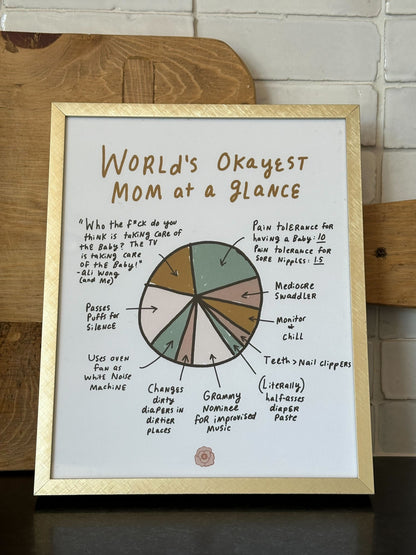 WORLD'S OKAYEST
MOM at a gLANCE
"Who the f*ck do you
think is taking care of
the Baby? The TV
is taking care
of the Baby!"
- Ali Wong
(and Me)
Pain tolerance for
having a Baby: 10
Pain tolerance for
sore Nipples: 1.5
Mediocre
Swaddler
Monitor
+
chill
Teeth > Nail clippers
(Literally)
half-asses
diaper
Paste
Grammy
Nominee
for improvised
Music
Changes
dirty
diapers in
dirtier
places
Uses oven
fan as
White Noise
Machine
Passes
Puffs for
Silence